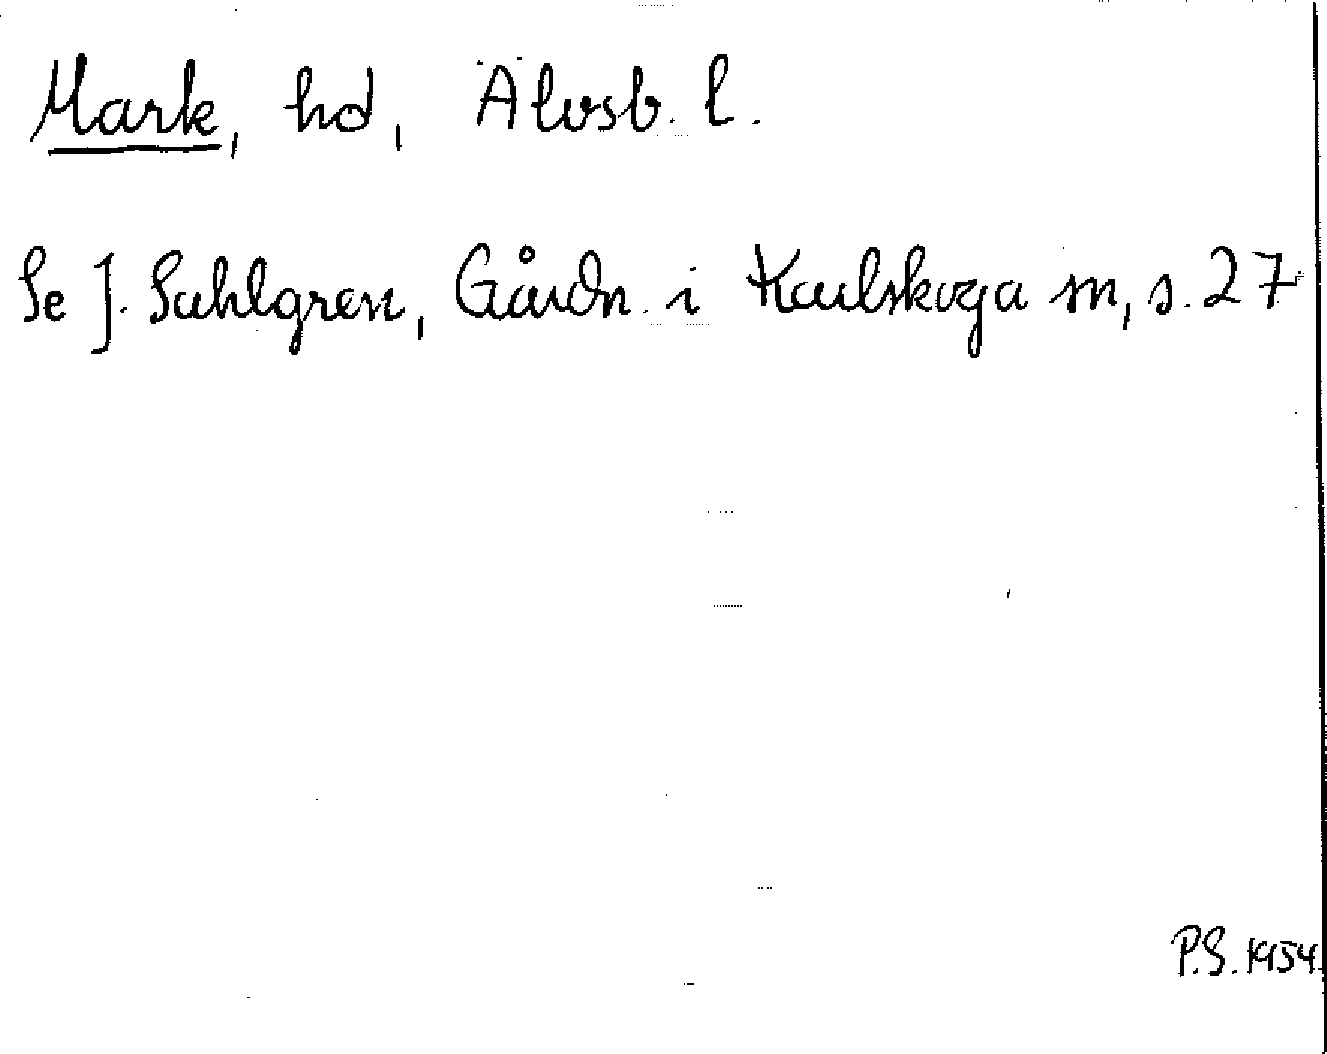 Mark, hd, Älvsb. l.
Se J. Sahlgren, Gårdn. i Karlskoga m, s. 27
P.S. 1954.